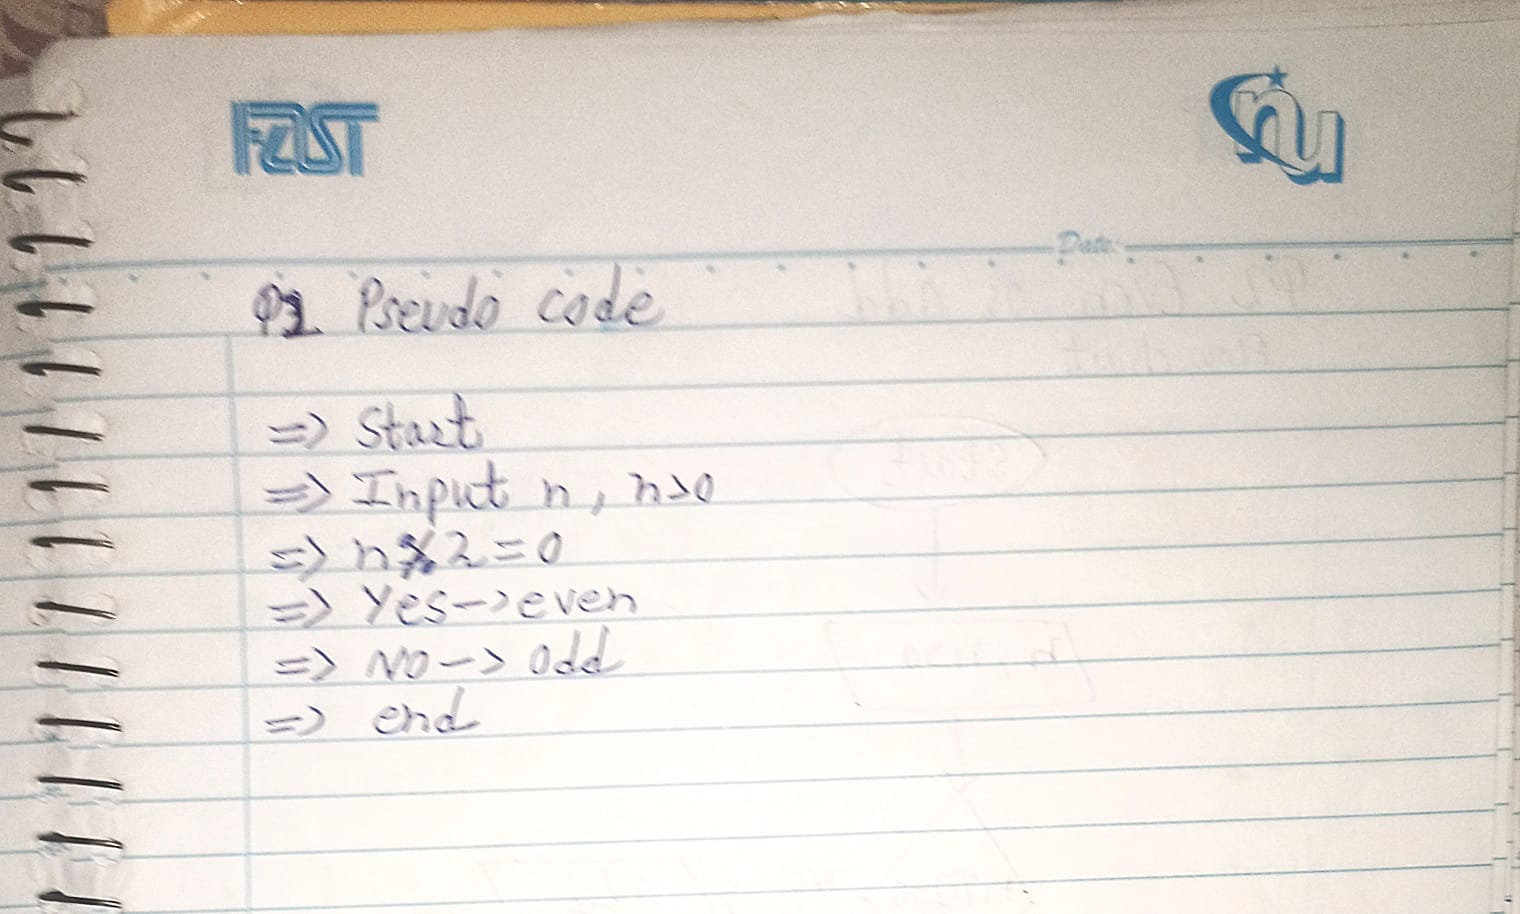 FAST
nu
Date:
Q1 Pseudo code
=> Start
=> Input n, n>0
=> n%2=0
=> Yes->even
=> NO-> Odd
=> end